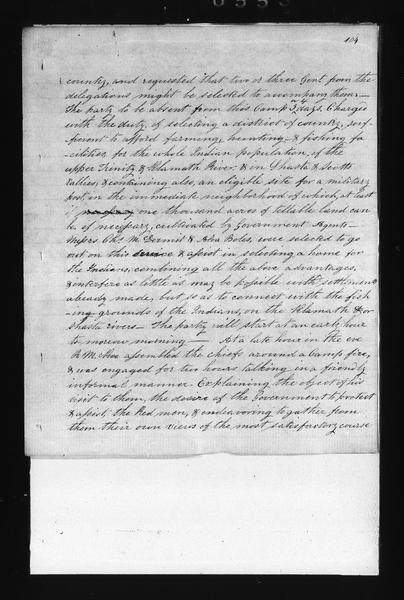 104
country, and requested that two or three Gent. from the
delegations might be selected to accompany them.—
The party to be absent from this Camp 3 days. Charged
with the duty of selecting a district of country, suf-
-ficient to afford farming, hunting & fishing fa-
-cilities, for the whole Indian population, of the
upper Trinity & Klamath River, & in Shasta & Scotts
Vallies, & containing also, an eligible site for a military
post, in the immediate neighborhood of which, at least
one thousand acres of tillable land can
be, if necessary, cultivated by Government Agents—
Messrs. Chs. McDermit & Boles, were selected to go
out on this & assist in selecting a home for
the Indians, combining all the above advantages,
& interfere as little as may be possible with settlements
already made, but is as to connect with the fish-
-ing grounds of the Indians, on the Klamath &/or
Shasta rivers— The party will start at an early hour
to morrow morning— At a late hour in the eve
R. McKee assembled the chiefs around a Camp fire,
& was engaged for two hours talking in a friendly
informal manner Explaining the object of his
visit to them, the desire of the Government to protect
& assist the Red men, & endeavoring to gather from
them their own views of the most satisfactory course